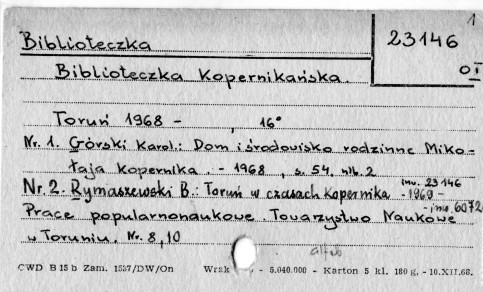 1
Biblioteczka
23146
Biblioteczka Kopernikańska.
Toruń 1968 - , 16°
Nr. 1. Górski Karol: Dom i środowisko rodzinne Miko-
łaja Kopernika. - 1968, s. 54, nlb. 2
inw. 23146
Nr. 2. Rymaszewski B.: Toruń w czasach Kopernika - 1969 -
- inw. 6072
Prace popularnonaukowe. Towarzystwo Naukowe
w Toruniu. Nr. 8, 10
CWD B 15 b Zam. 1537/DW/On Wrak - 5.040.000 - Karton 5 kl. 180 g. - 10.XII.68.